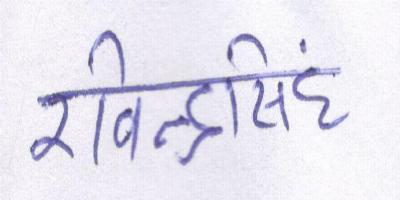 रविन्द्रसिंह